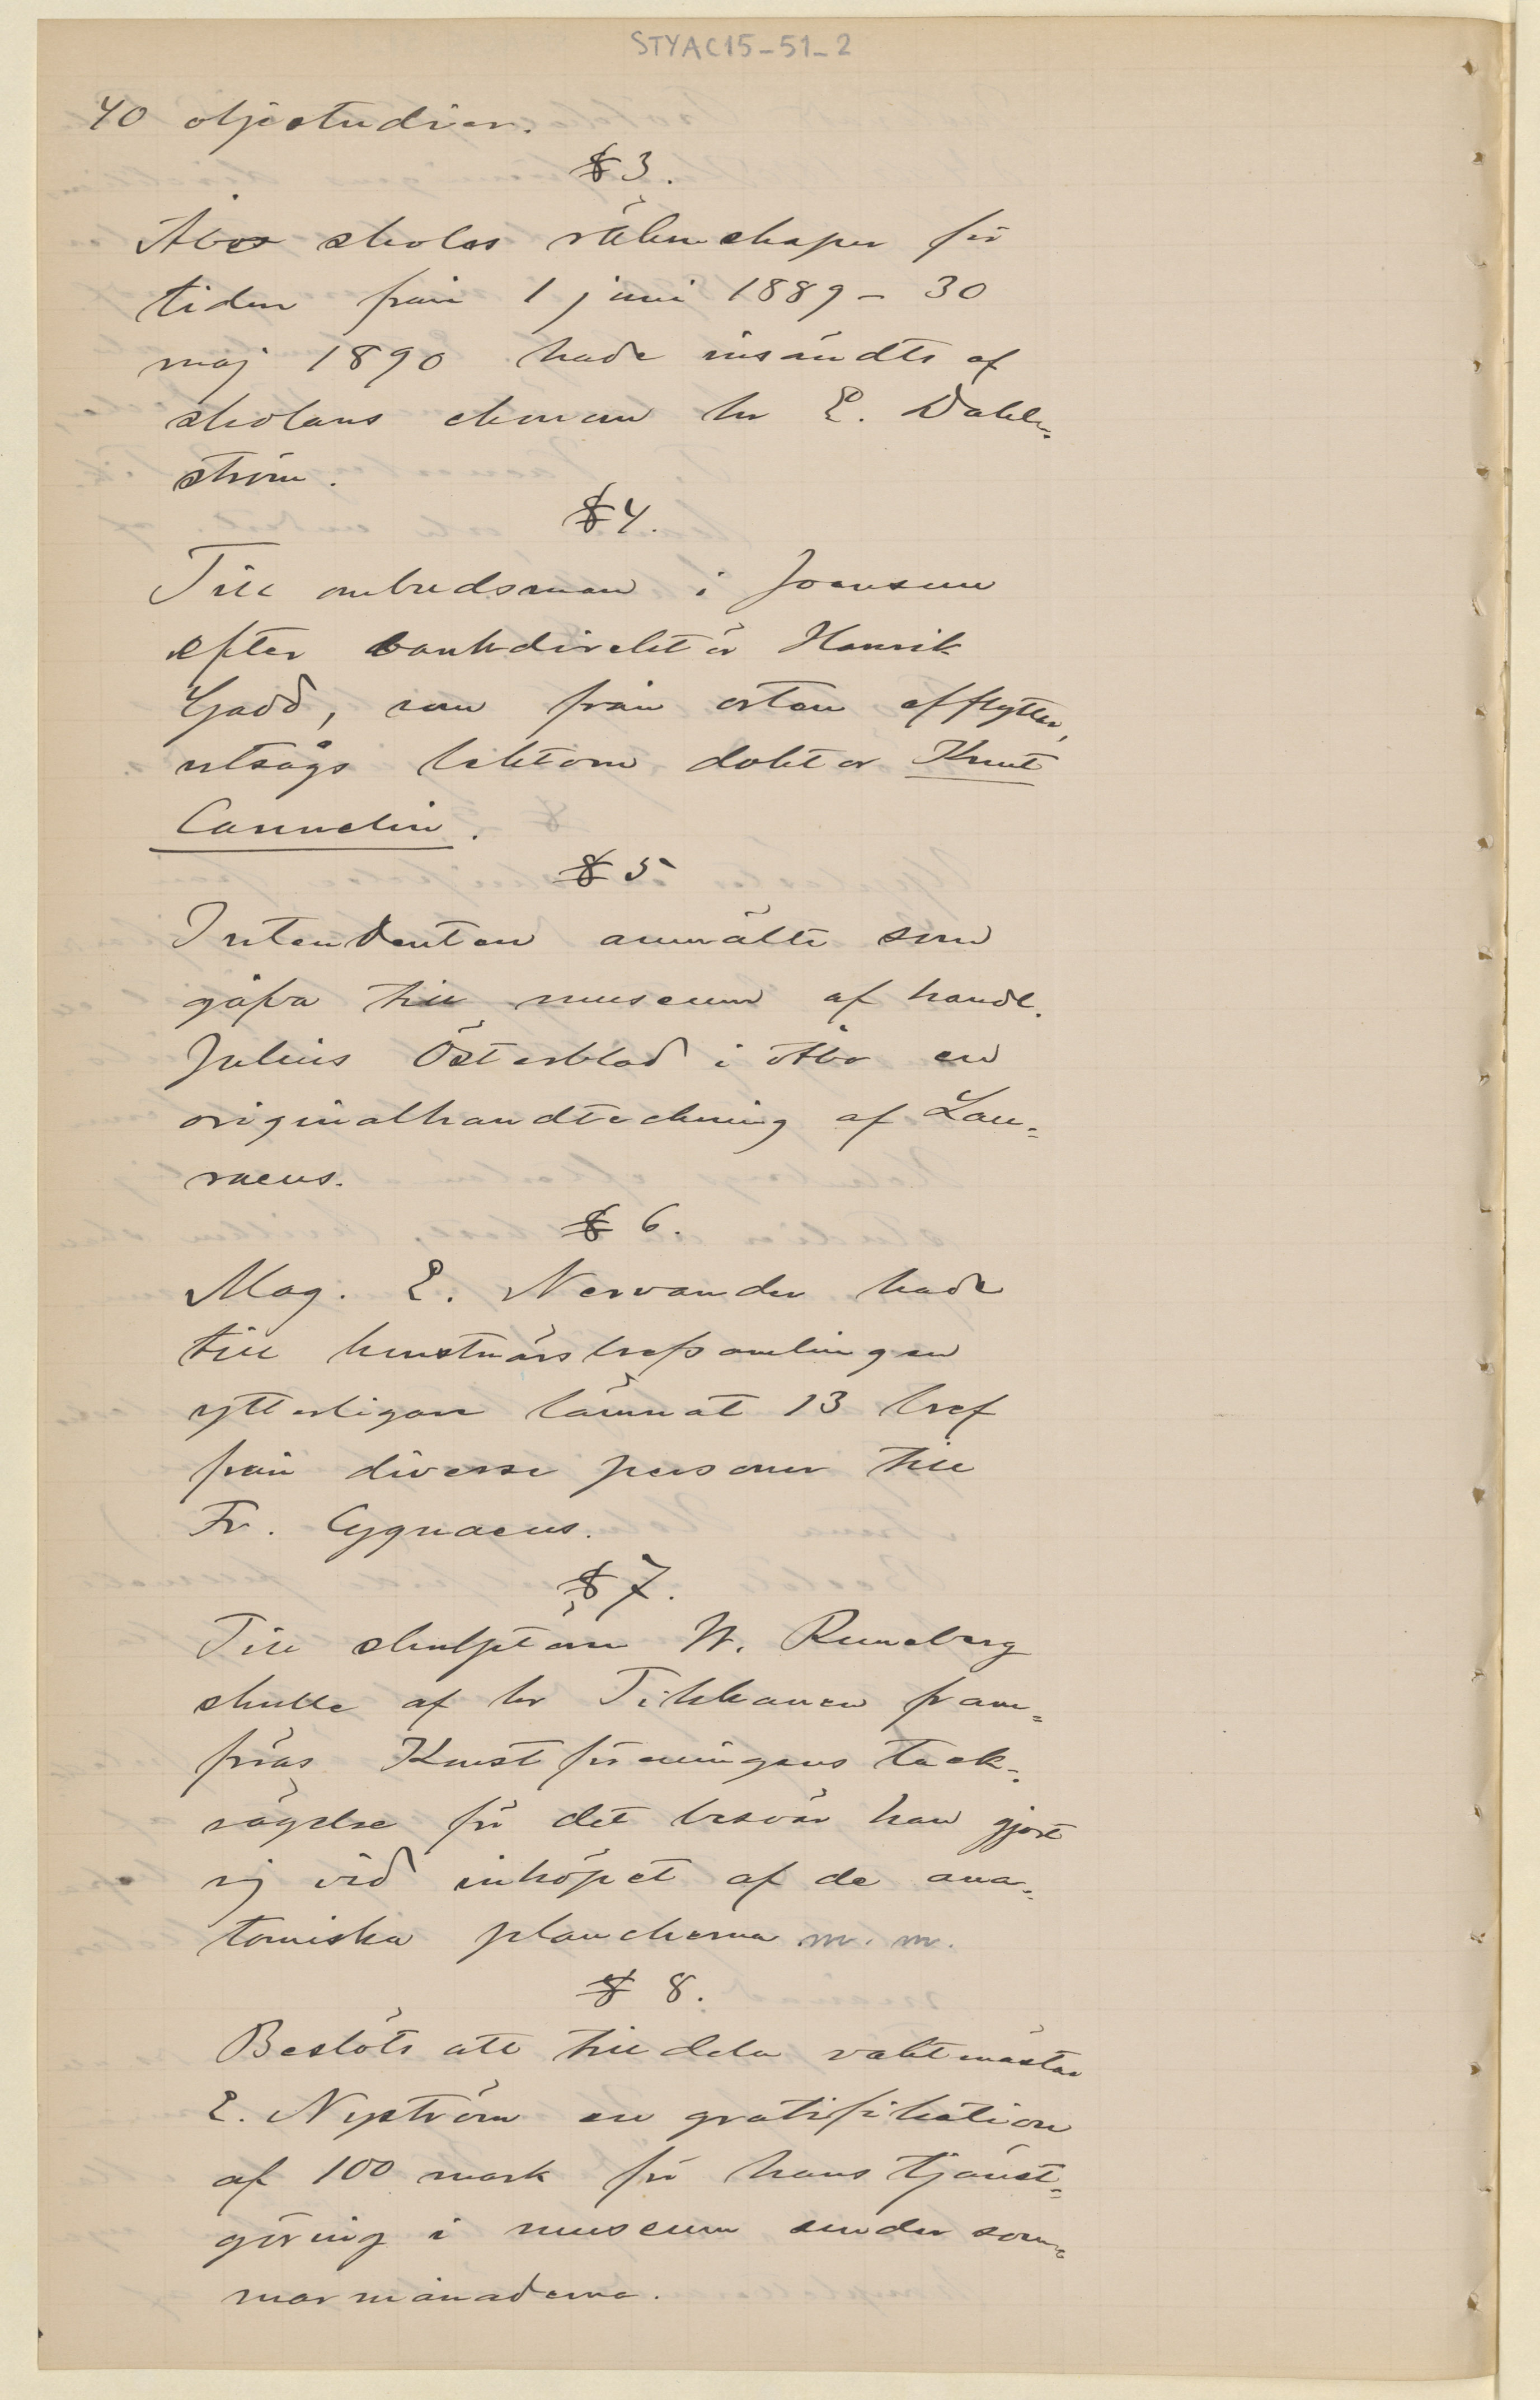 STYAC15-51_2
40 oljestudier.
§ 3.
Åbo skolas räkenskaper för
tiden från 1 juni 1889 – 30
maj 1890 hade insändts af
skolans ekonom hr E. Dahl=
ström.
§ 4.
Till ombudsman i Joensuu
efter bankdirektör Henrik
Gadd, som från orten afflyttar,
utsågs lektorn, doktor Knut
Cannelin.
§ 5
Intendenten anmälte som
gåfva till museum af handl.
Julius Österblad i Åbo en
originalhandteckning af Lau=
raeus.
§ 6.
Mag. E. Nervander hade
till konstnärsbrefsamlingen
ytterligare lämnat 13 bref
från diverse personer till
Fr. Cygnaeus.
§ 7.
Till skulptören W. Runeberg
skulle af hr Tikkanen fram=
föras Konstföreningens tack=
sägelse för det besvär han gjort
sig vid inköpet af de ana=
tomiska plancherna m. m.
§ 8.
Beslöts att tilldela vaktmästar
E. Nyström en gratifikation
af 100 mark för hans tjänst=
göring i museum under som=
marmånaderna.